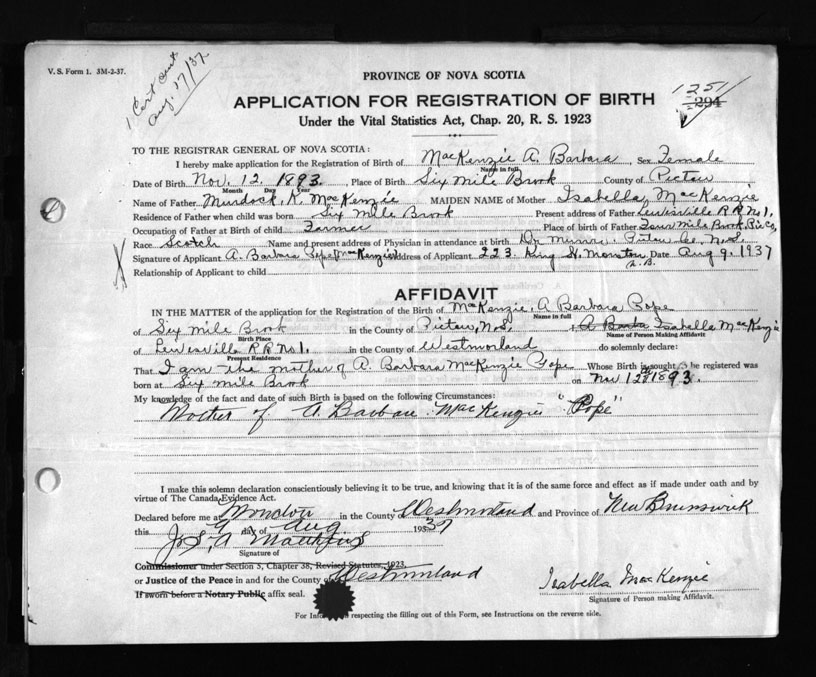 V. S. Form 1. 3M-2-37.
1 Cert
Aug. 17/37
PROVINCE OF NOVA SCOTIA
1251
294
APPLICATION FOR REGISTRATION OF BIRTH
Under the Vital Statistics Act, Chap. 20, R. S. 1923
TO THE REGISTRAR GENERAL OF NOVA SCOTIA:
I hereby make application for the Registration of Birth of MacKenzie A. Barbara, Sex Female
Name in full
Date of Birth Nov. 12. 1893. Place of Birth Six Mile Brook County of Pictou
Month Day Year
Name of Father Murdock K. MacKenzie MAIDEN NAME of Mother Isabella MacKenzie
Residence of Father when child was born Six Mile Brook Present address of Father Lewisville R R No 1.
Occupation of Father at Birth of child Farmer Place of birth of Father Four Mile Brook, Pic Co,
Race Scotch Name and present address of Physician in attendance at birth Dr Munro. Pictou Co. N.S.
Signature of Applicant A. Barbara Pope (MacKenzie) Address of Applicant 223 King St. Moncton N.B. Date Aug 9. 1937
Relationship of Applicant to child
AFFIDAVIT
IN THE MATTER of the application for the Registration of the Birth of MacKenzie, A Barbara Pope
Name in full
of Six Mile Brook in the County of Pictou, N.S, I, A Barba Isabella MacKenzie
Birth Place Name of Person Making Affidavit
of Lewisville R R No 1. in the County of Westmorland do solemnly declare:
Present Residence
That I am the mother of A. Barbara MacKenzie Pope Whose Birth is sought to be registered was
born at Six Mile Brook on Nov 12th 1893.
My knowledge of the fact and date of such Birth is based on the following Circumstances:
Mother of A Barbara MacKenzie "Pope"
I make this solemn declaration conscientiously believing it to be true, and knowing that it is of the same force and effect as if made under oath and by
virtue of The Canada Evidence Act.
Declared before me at Moncton in the County of Westmorland and Province of New Brunswick
this 9 day of Aug 1937
Signature of
Commissioner under Section 5, Chapter 38, Revised Statutes, 1923,
or Justice of the Peace in and for the County of Westmorland
If sworn before a Notary Public affix seal.
Isabella MacKenzie
Signature of Person making Affidavit.
For Info respecting the filling out of this Form, see Instructions on the reverse side.